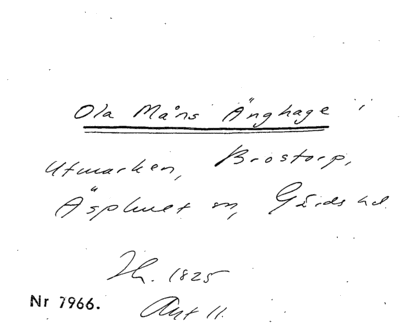 Ola Måns Änghage i
Utmarken, Brostorp,
Äsphult sn, Gärds hd.
Th. 1825
Nr 7966.
Avt 11.